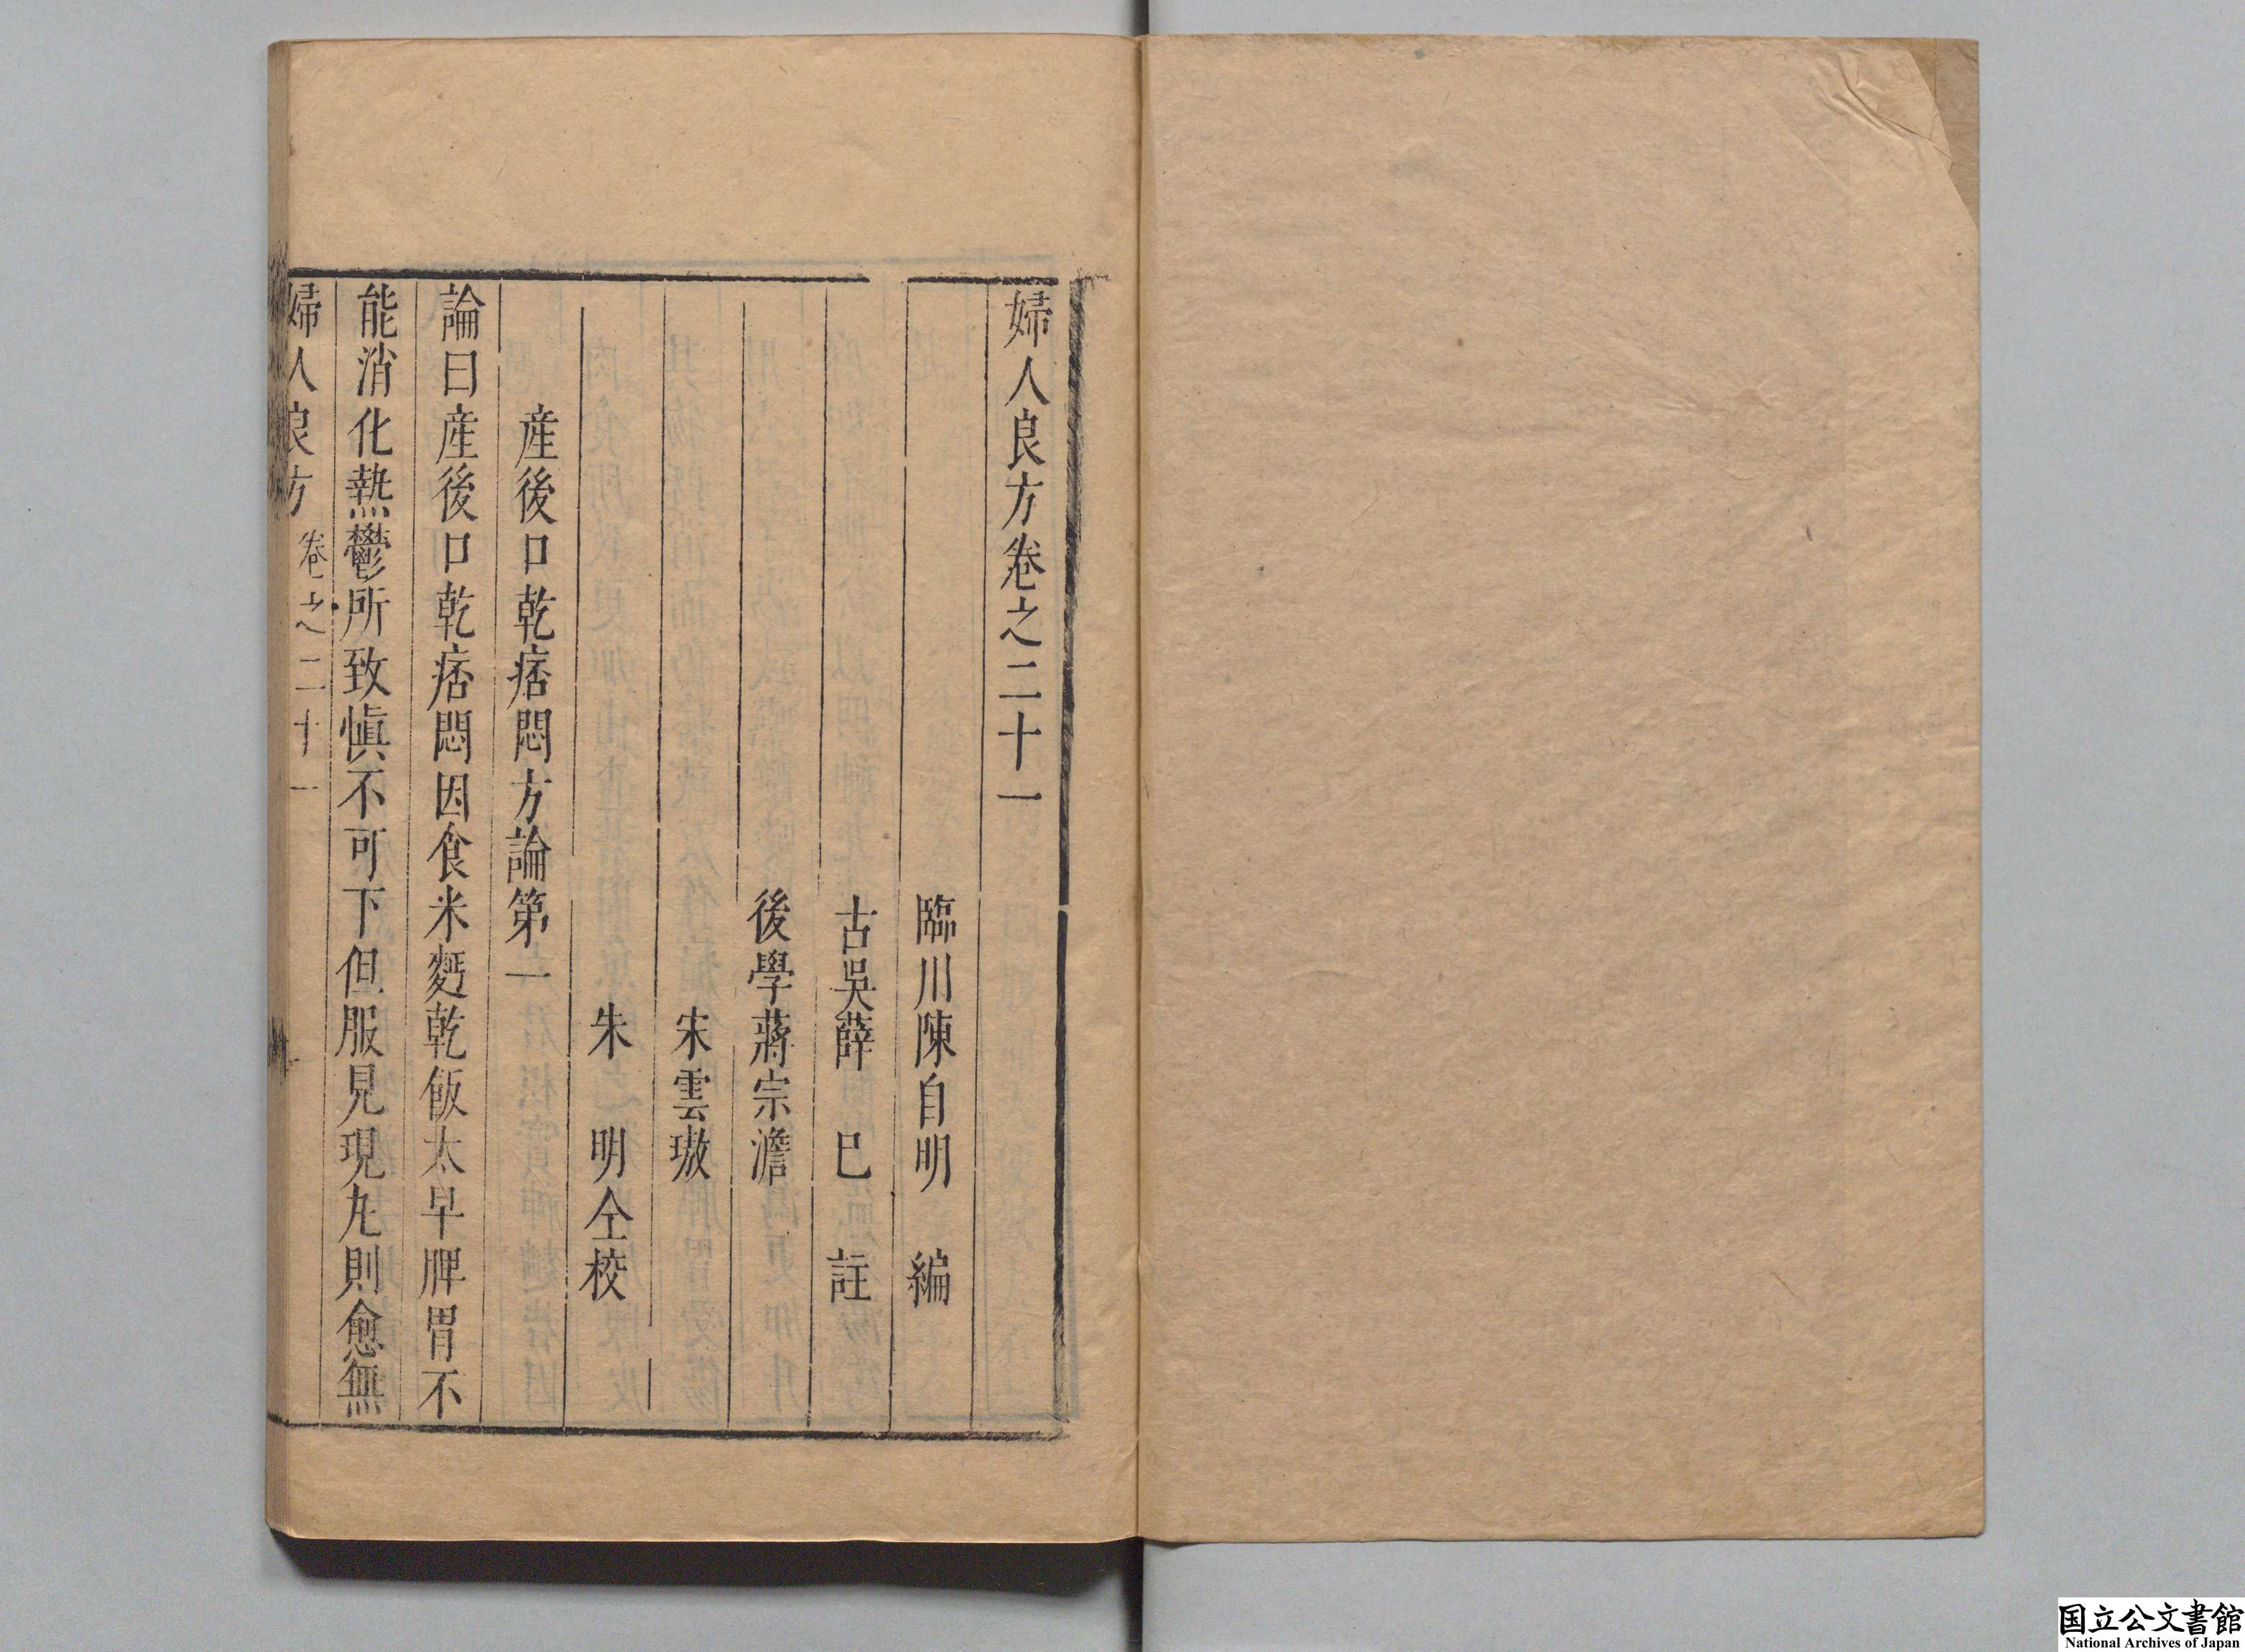 婦人良方卷之二十一
臨川陳自明　編
古吳薛　巳　註
後學蔣宗澹
宋雲璈
朱　明仝校
産後口乾痞悶方論第一
論曰産後口乾痞悶因食米麪乾飯太早脾胃不
能消化熱鬱所致慎不可下但服見現丸則愈無
婦人良方　卷之二十一
国立公文書館
National Archives of Japan